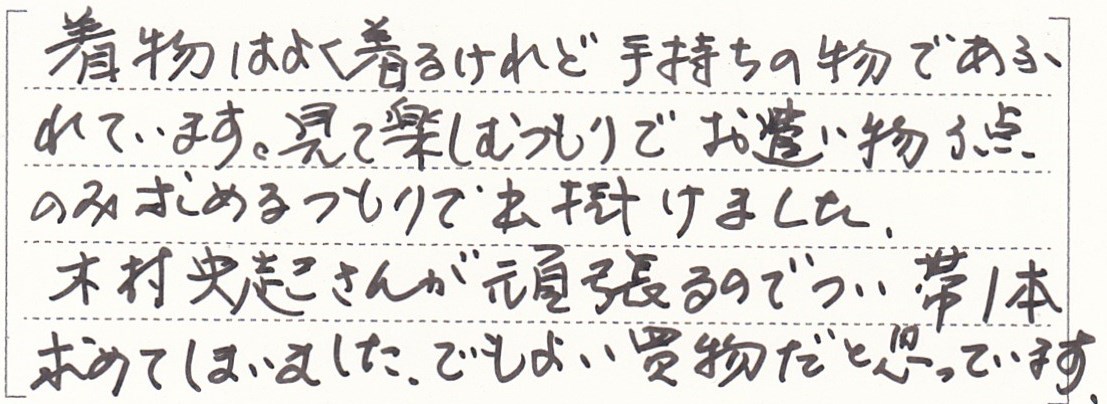 着物はよく着るけれど手持ちの物であふ
れています。見て楽しむつもりでお遣い物1点
のみ求めるつもりで出掛けました。
木村史起さんが頑張るのでつい帯1本
求めてしまいました。でもよい買物だと思っています。